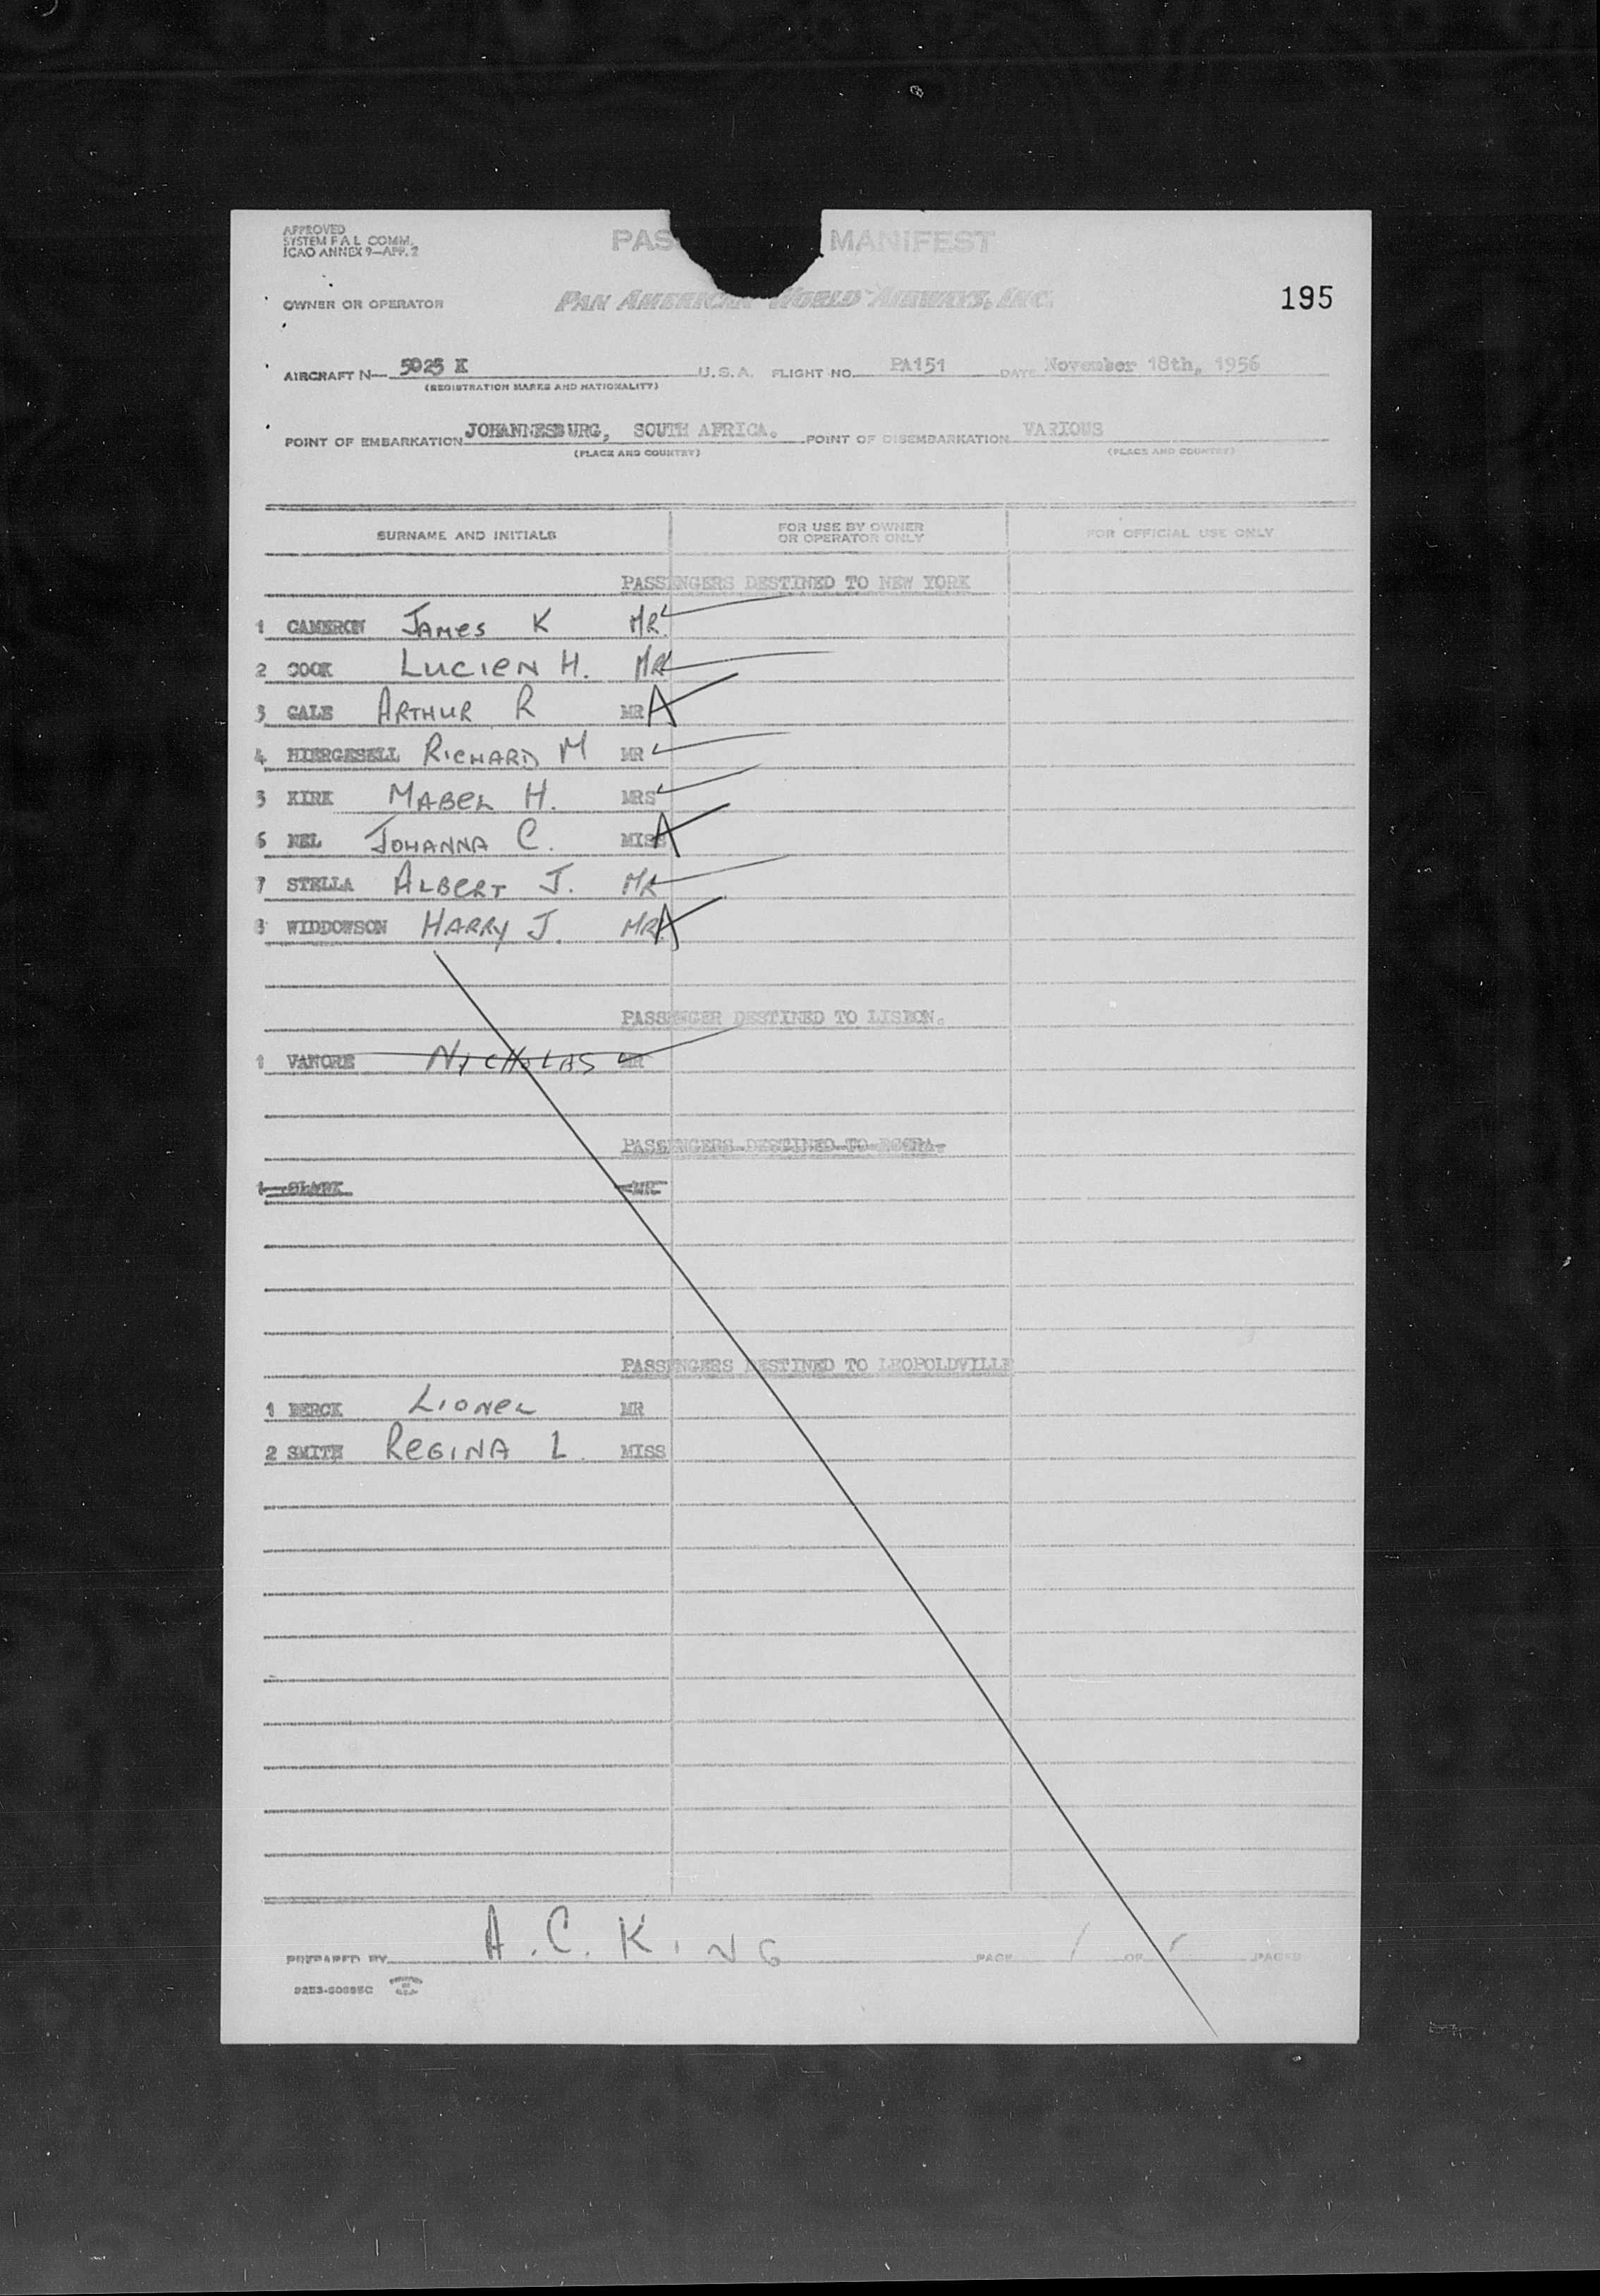 APPROVED
SYSTEM F A L COMM.
ICAO ANNEX 9—APP. 2
PAS MANIFEST
OWNER OR OPERATOR PAN AMERICAN WORLD AIRWAYS, INC.
195
AIRCRAFT N— 5025 K U.S.A. FLIGHT NO. PA151 DATE November 18th, 1956
(REGISTRATION MARKS AND NATIONALITY)
POINT OF EMBARKATION JOHANNESBURG, SOUTH AFRICA. POINT OF DISEMBARKATION VARIOUS
(PLACE AND COUNTRY) (PLACE AND COUNTRY)
SURNAME AND INITIALS FOR USE BY OWNER OR OPERATOR ONLY FOR OFFICIAL USE ONLY
PASSENGERS DESTINED TO NEW YORK
1 CAMERON JAMES K MR.
2 COOK LUCIEN H. MR
3 GALE ARTHUR R MR A
4 HIERGESELL RICHARD M MR
5 KIRK MABEL H. MRS
6 NEL JOHANNA C. MISS A
7 STELLA ALBERT J. MR
8 WIDDOWSON HARRY J. MR A
PASSENGER DESTINED TO LISBON.
1 VANORE NICHOLAS MR
PASSENGERS DESTINED TO
1 CLARK MR
PASSENGERS DESTINED TO LEOPOLDVILLE
1 BERCK LIONEL MR
2 SMITH REGINA L. MISS
PREPARED BY A. C. KING PAGE 1 OF 1 PAGES